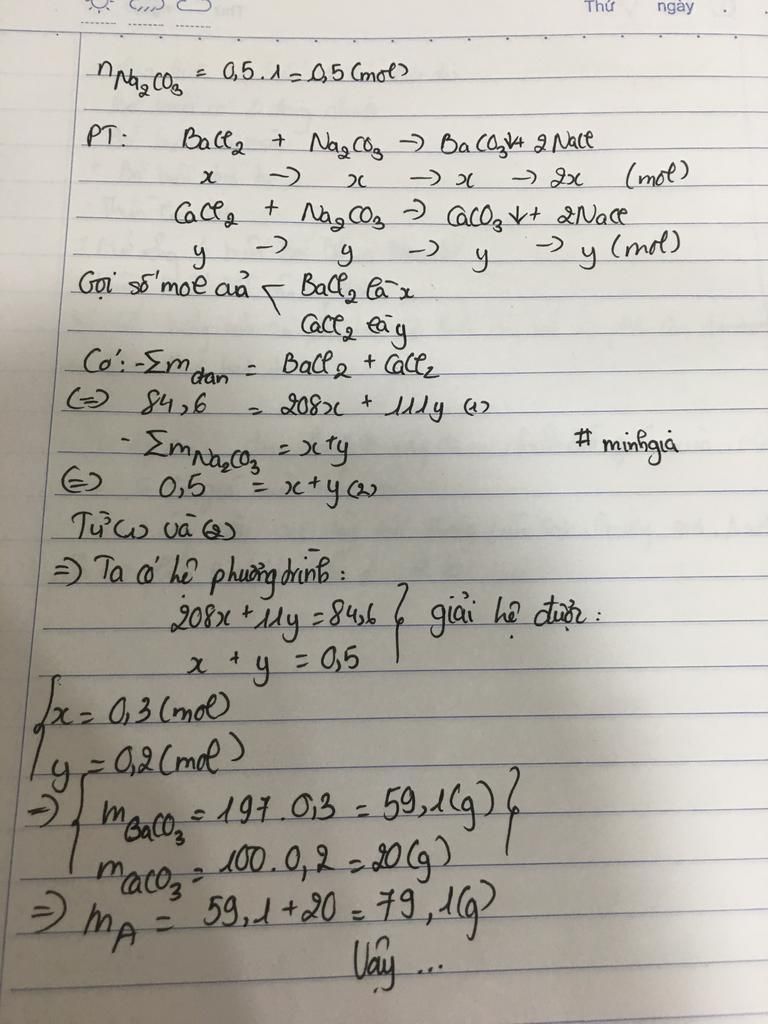 Thứ ngày
nNa2CO3 = 0,5.1 = 0,5 (mol)
PT: BaCl2 + Na2CO3 -> BaCO3↓ + 2NaCl
x -> x -> x -> 2x (mol)
CaCl2 + Na2CO3 -> CaCO3↓ + 2NaCl
y -> y -> y -> y (mol)
Gọi số mol của < BaCl2 là x
CaCl2 là y
Có: - Σm dan = BaCl2 + CaCl2
(=) 84,6 = 208x + 111y (1)
- ΣmNa2CO3 = x+y # minhgià
(=) 0,5 = x + y (2)
Từ (1) và (2)
=) Ta có hệ phương trình:
208x + 11y = 84,6 } giải hệ được:
x + y = 0,5
{ x = 0,3 (mol)
y = 0,2 (mol)
=) { mBaCO3 = 197 . 0,3 = 59,1 (g) }
mCaCO3 = 100 . 0,2 = 20 (g)
=) mA = 59,1 + 20 = 79,1 (g)
Vậy ...